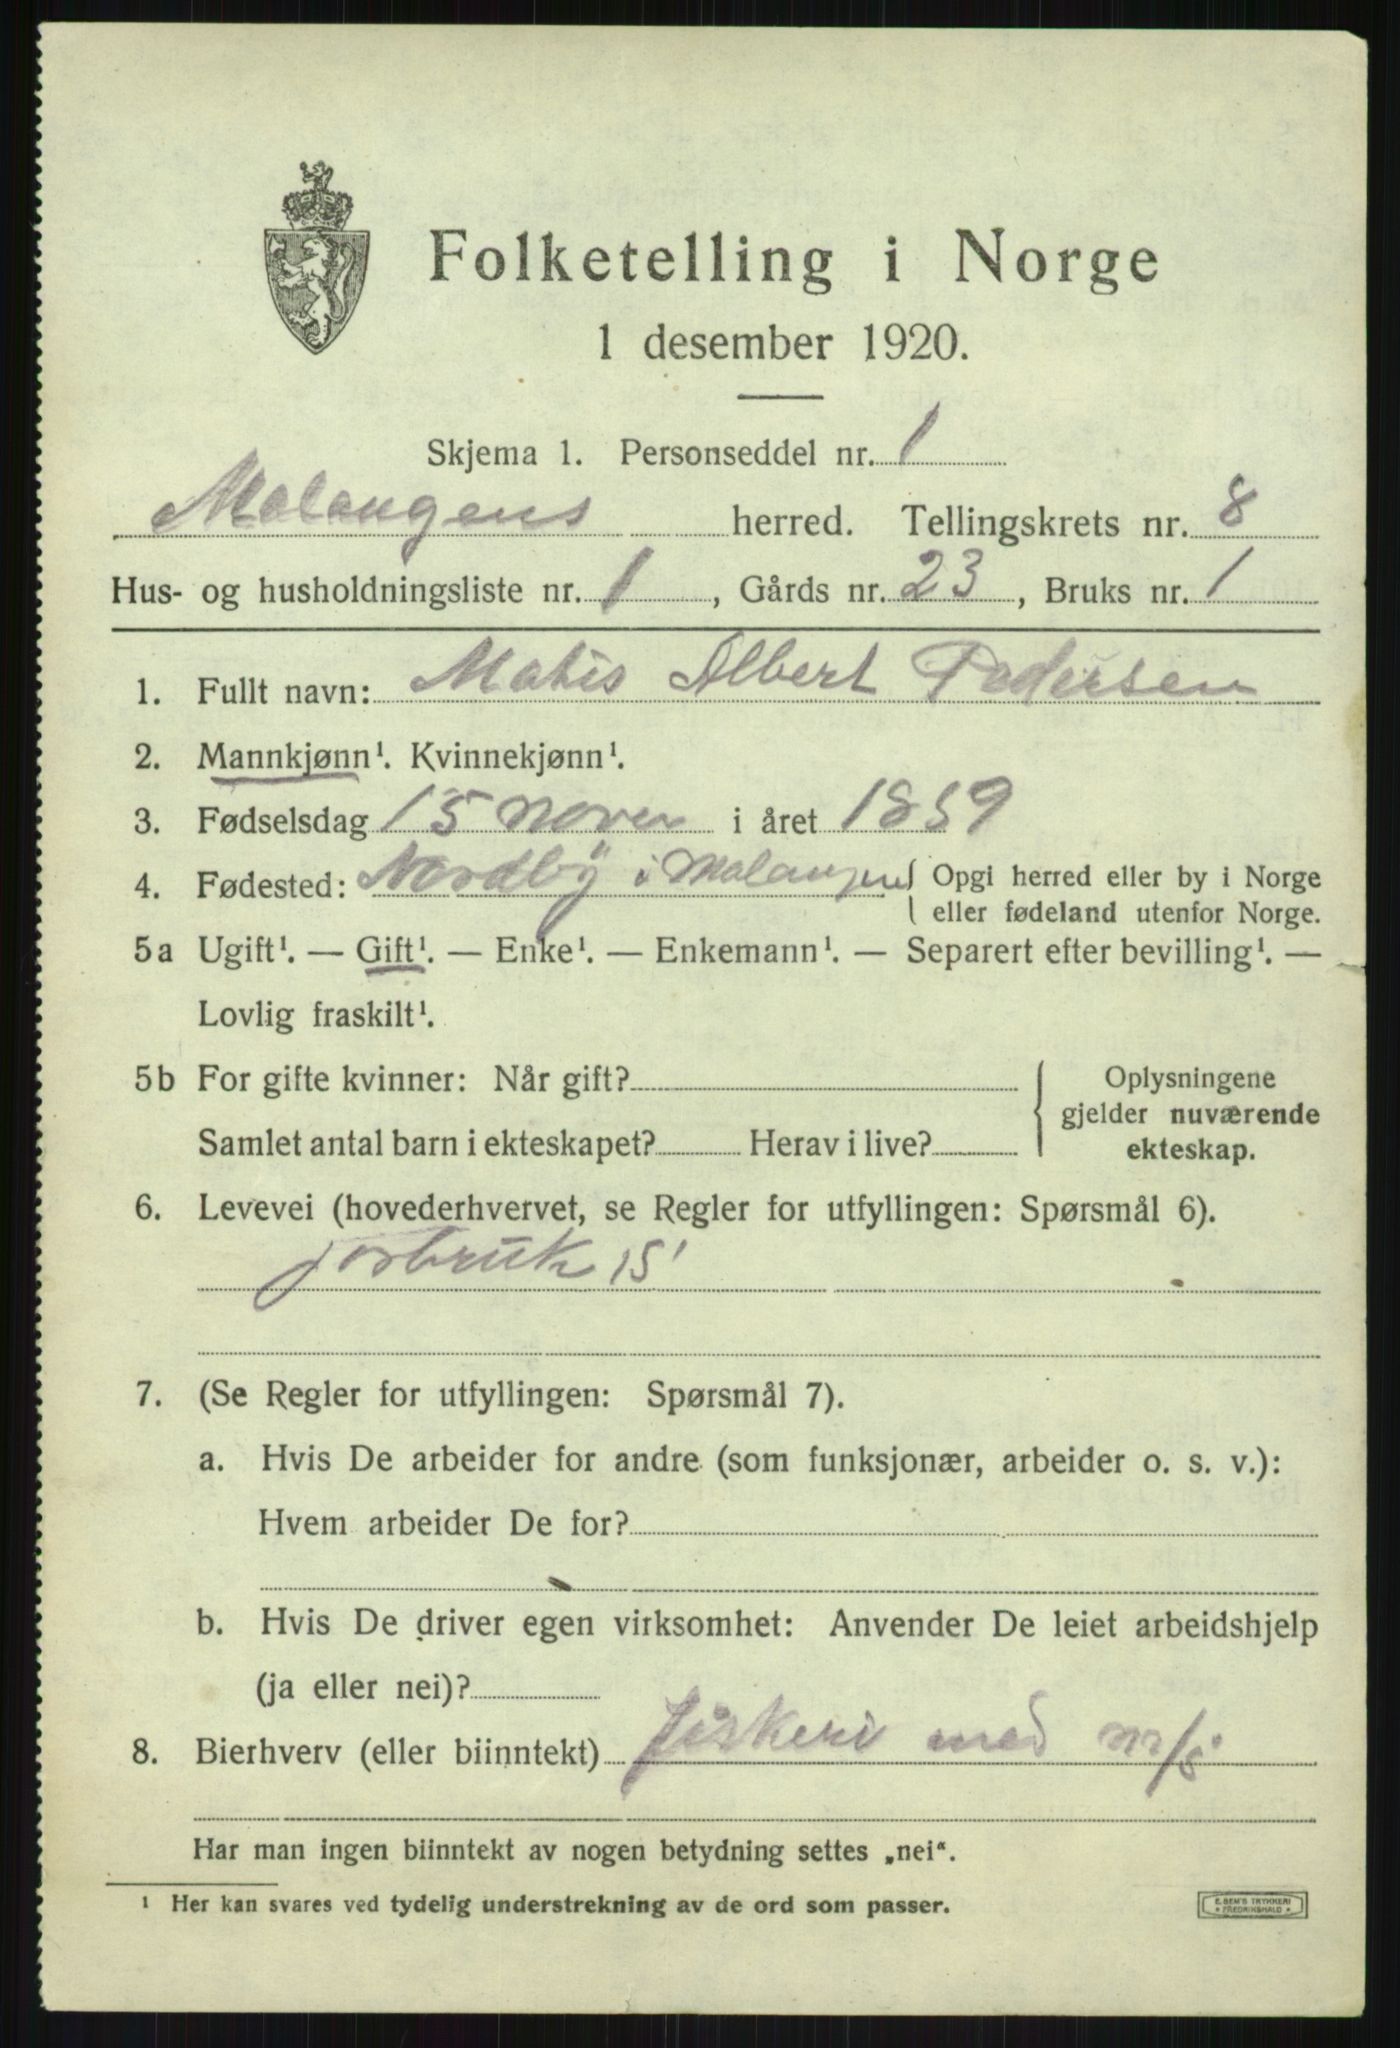 Folketelling i Norge
1 desember 1920.
Skjema 1. Personseddel nr. 1
Malangens herred. Tellingskrets nr. 8
Hus- og husholdningsliste nr. 1, Gårds nr. 23, Bruks nr. 1
1. Fullt navn: Matis Albert Pedersen
2. Mannkjønn¹. Kvinnekjønn¹.
3. Fødselsdag 15 novem i året 1859
4. Fødested: Nordby i Malangen { Opgi herred eller by i Norge
eller fødeland utenfor Norge.
5a Ugift¹. — Gift¹. — Enke¹. — Enkemann¹. — Separert efter bevilling¹. —
Lovlig fraskilt¹.
5b For gifte kvinner: Når gift? { Oplysningene
gjelder nuværende
Samlet antal barn i ekteskapet? Herav i live? ekteskap.
6. Levevei (hovederhvervet, se Regler for utfyllingen: Spørsmål 6).
jorbruk
7. (Se Regler for utfyllingen: Spørsmål 7).
a. Hvis De arbeider for andre (som funksjonær, arbeider o. s. v.):
Hvem arbeider De for?
b. Hvis De driver egen virksomhet: Anvender De leiet arbeidshjelp
(ja eller nei)?
8. Bierhverv (eller biinntekt) fiskeri med
Har man ingen biinntekt av nogen betydning settes „nei“.
¹ Her kan svares ved tydelig understrekning av de ord som passer.
E. SEM'S TRYKKERI
* FREDRIKSHALD *